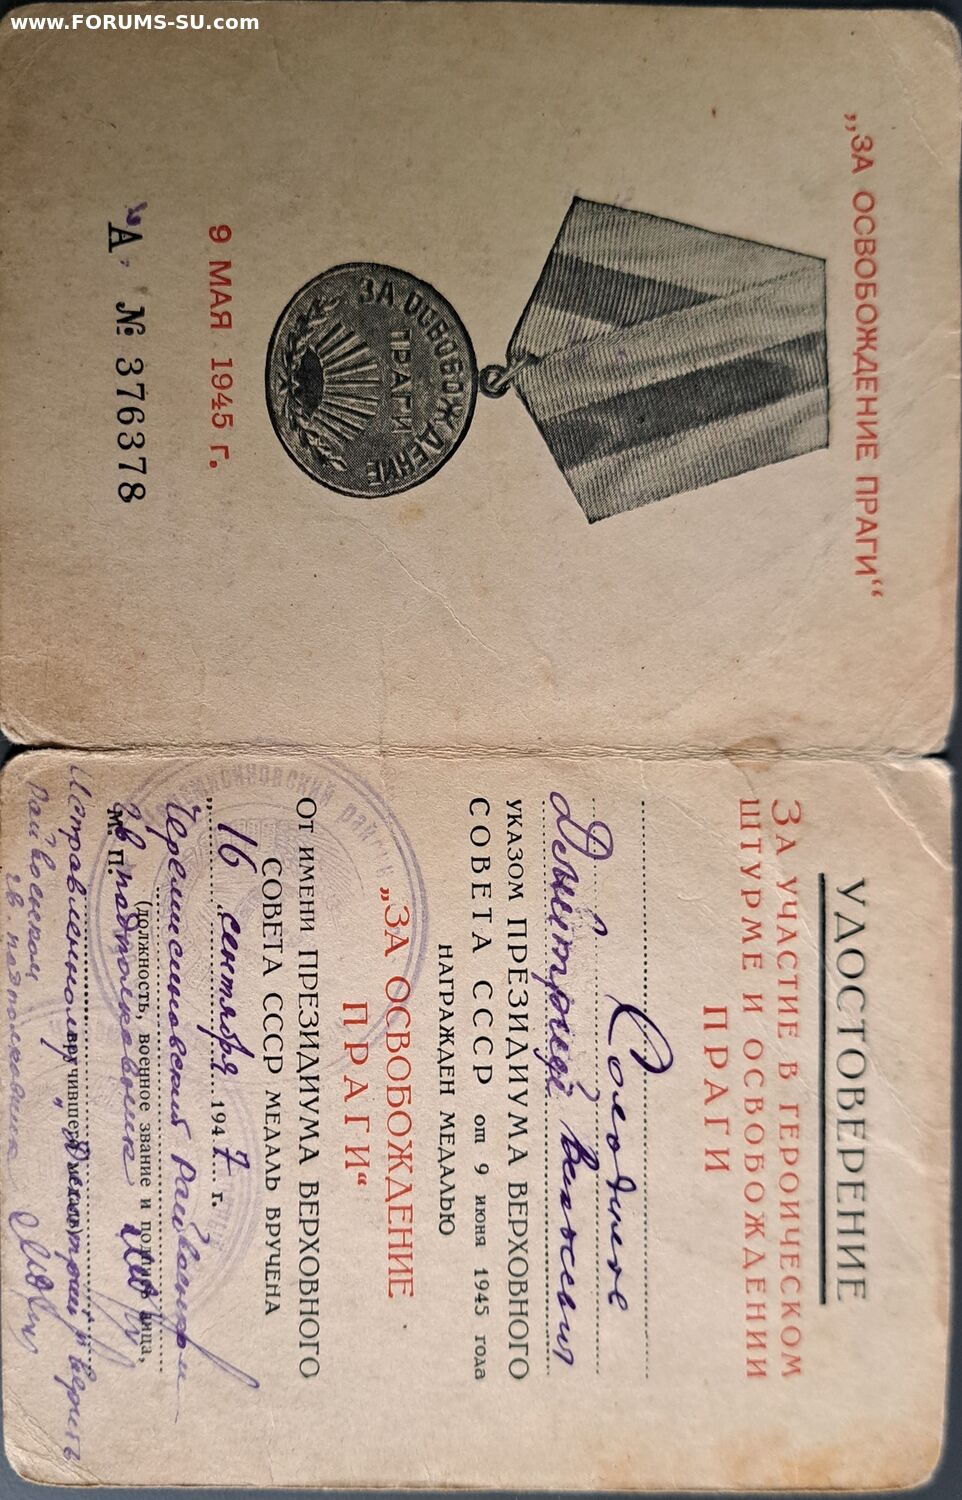 www.FORUMS-SU.com
„ЗА ОСВОБОЖДЕНИЕ ПРАГИ“
ЗА ОСВОБОЖДЕНИЕ
ПРАГИ
9 МАЯ 1945 г.
А № 376378
УДОСТОВЕРЕНИЕ
ЗА УЧАСТИЕ В ГЕРОИЧЕСКОМ
ШТУРМЕ И ОСВОБОЖДЕНИИ
ПРАГИ
Дмитрий
УКАЗОМ ПРЕЗИДИУМА ВЕРХОВНОГО
СОВЕТА СССР от 9 июня 1945 года
НАГРАЖДЕН МЕДАЛЬЮ
„ЗА ОСВОБОЖДЕНИЕ
ПРАГИ“
ОТ ИМЕНИ ПРЕЗИДИУМА ВЕРХОВНОГО
СОВЕТА СССР МЕДАЛЬ ВРУЧЕНА
„16 сентября 1947 г.
Черемисиновский Райвоенком
гв подполковник
М. П.
(должность, военное звание и подпись лица,
вручившего медаль)
Исправленному „Дмитрий“ верить
Райвоенком
гв. подполковник